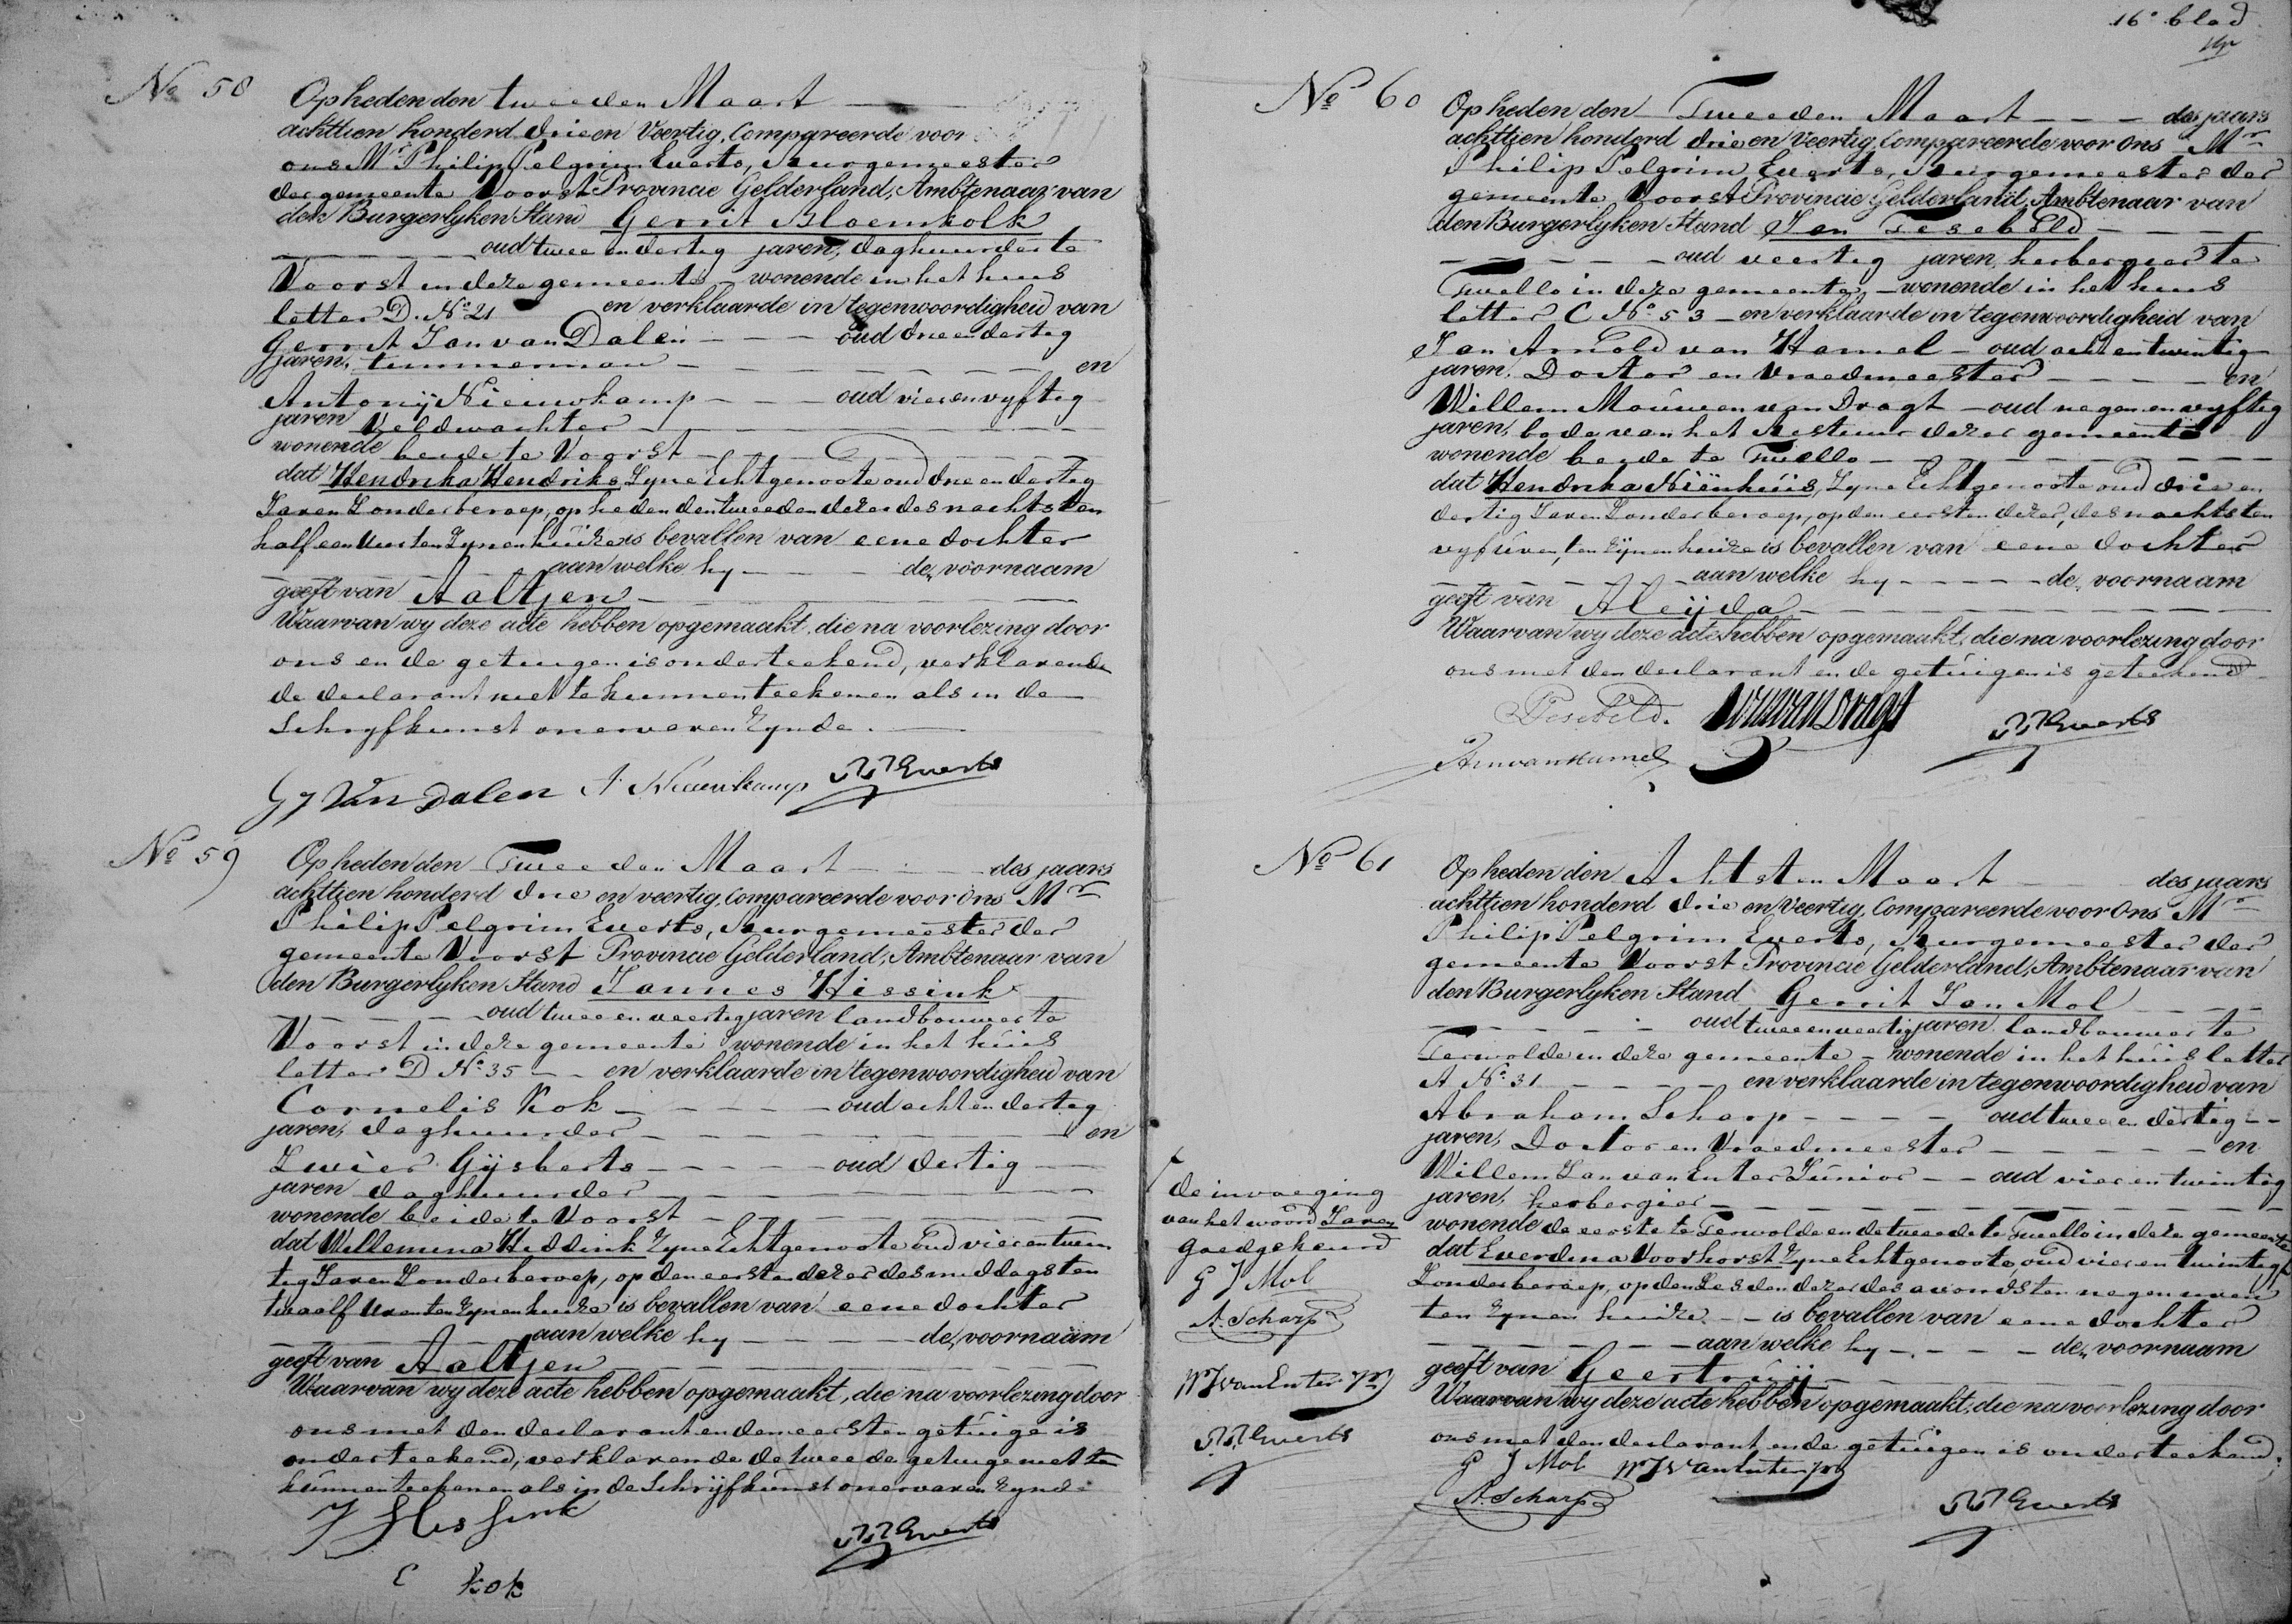 16e blad
No 58
Op heden den tweeden Maart
achttien honderd drie en Veertig, Compareerde voor
ons Mr Philip Pelgrim Everts, Burgemeester
der gemeente Voorst Provincie Gelderland, Ambtenaar van
den Burgerlyken Stand Gerrit Bloemkolk
oud twee en dertig jaren, daghuurder te
Voorst in deze gemeente wonende in het huis
letter D. No 21 en verklaarde in tegenwoordigheid van
Gerrit Jan van Dalen oud drie en dertig
jaren, timmerman en
Antonij Nieuwkamp oud vier en vyftig
jaren Veldwachter
wonende beide te Voorst
dat Hendrika Hendriks Zyne Echtgenoote oud drie en dertig
Jaren Zonder beroep, op heden den tweeden dezer des nachts ten
half een Uur ten Zynen huize is bevallen van eene dochter
aan welke hy de voornaam
geeft van Aaltjen
Waarvan wy deze acte hebben opgemaakt, die na voorlezing door
ons en de getuigen is onderteekend, verklarende
de declarant niet te kunnen teekenen als in de
Schryfkunst onervaren Zynde.
G J Van Dalen A Nieuwkamp PP Everts
No 59
Op heden den Tweeden Maart des jaars
achttien honderd drie en veertig, Compareerde voor Ons Mr
Philip Pelgrim Everts, Burgemeester der
gemeente Voorst Provincie Gelderland, Ambtenaar van
den Burgerlyken Stand Jannes Hissink
oud twee en veertig jaren landbouwer te
Voorst in deze gemeente wonende in het huis
letter D No 35 en verklaarde in tegenwoordigheid van
Cornelis Kok oud acht en dertig
jaren, daghuurder en
Zwier Gijsberts oud dertig
jaren daghuurder
wonende beide te Voorst
dat Willemina Heddink Zyne Echtgenoote Oud vier en twin
tig Jaren Zonder beroep, op den eersten dezer des middags ten
twaalf Uren ten Zynen huize is bevallen van eene dochter
aan welke hy de voornaam
geeft van Aaltjen
Waarvan wy deze acte hebben opgemaakt, die na voorlezing door
ons met den declarant en den eersten getuige is
onderteekend, verklarende de tweede getuige niet te
kunnen teekenen als in de Schrijfkunst onervaren Zynde
J Hissink PP Everts
C Kok
No 60
Op heden den Tweeden Maart des jaars
achttien honderd drie en Veertig, Compareerde voor Ons Mr
Philip Pelgrim Everts, Burgemeester der
gemeente Voorst Provincie Gelderland, Ambtenaar van
den Burgerlyken Stand Jan Tesebeld
oud veertig jaren, herbergier te
Twello in deze gemeente, wonende in het huis
letter C No 53 en verklaarde in tegenwoordigheid van
Jan Arnold van Hamel oud acht en twintig
jaren, Doctor en Vroedmeester en
Willem Mouwen van Dragt oud negen en vyftig
jaren, bode van het Bestuur dezer gemeente
wonende beide te Twello
dat Hendrika Niënhuis, Zyne Echtgenoote oud drie en
dertig Jaren Zonder beroep, op den eersten dezer, des nachts ten
vyf uren, ten zijnen huize is bevallen van eene dochter
aan welke hy de voornaam
geeft van Aleijda
Waarvan wy deze acte hebben opgemaakt, die na voorlezing door
ons met den declarant en de getuigen is geteekend
Tesebeld. WM van Dragt PP Everts
JA van Hamel
No 61
Op heden den Achtsten Maart des jaars
achttien honderd drie en Veertig, Compareerde voor Ons Mr
Philip Pelgrim Everts, Burgemeester der
gemeente Voorst Provincie Gelderland, Ambtenaar van
den Burgerlyken Stand Gerrit Jan Mol
oud twee en veertig jaren, landbouwer te
Terwolde in deze gemeente wonende in het huis letter
A No 31 en verklaarde in tegenwoordigheid van
Abraham Scharp oud twee en dertig
jaren, Doctor en Vroedmeester en
Willem Jan van Enter Junior oud vier en twintig
jaren, herbergier
wonende de eerste te Terwolde en de tweede te Twello in deze gemeente
dat Everdina Voorhorst Zyne Echtgenoote oud vier en twintig
Zonder beroep, op den Zesden dezer des avonds ten negen uren
ten Zynen huize is bevallen van eene dochter
aan welke hy de voornaam
geeft van Geertruij
Waarvan wy deze acte hebben opgemaakt, die na voorlezing door
ons met den declarant en de getuigen is onderteekend.
G J Mol WJ van Enter Jr
A. Scharp PP Everts
de invoeging
van het woord Jaren
goedgekeurd
G J Mol
A. Scharp
WJ van Enter Jr
PP Everts